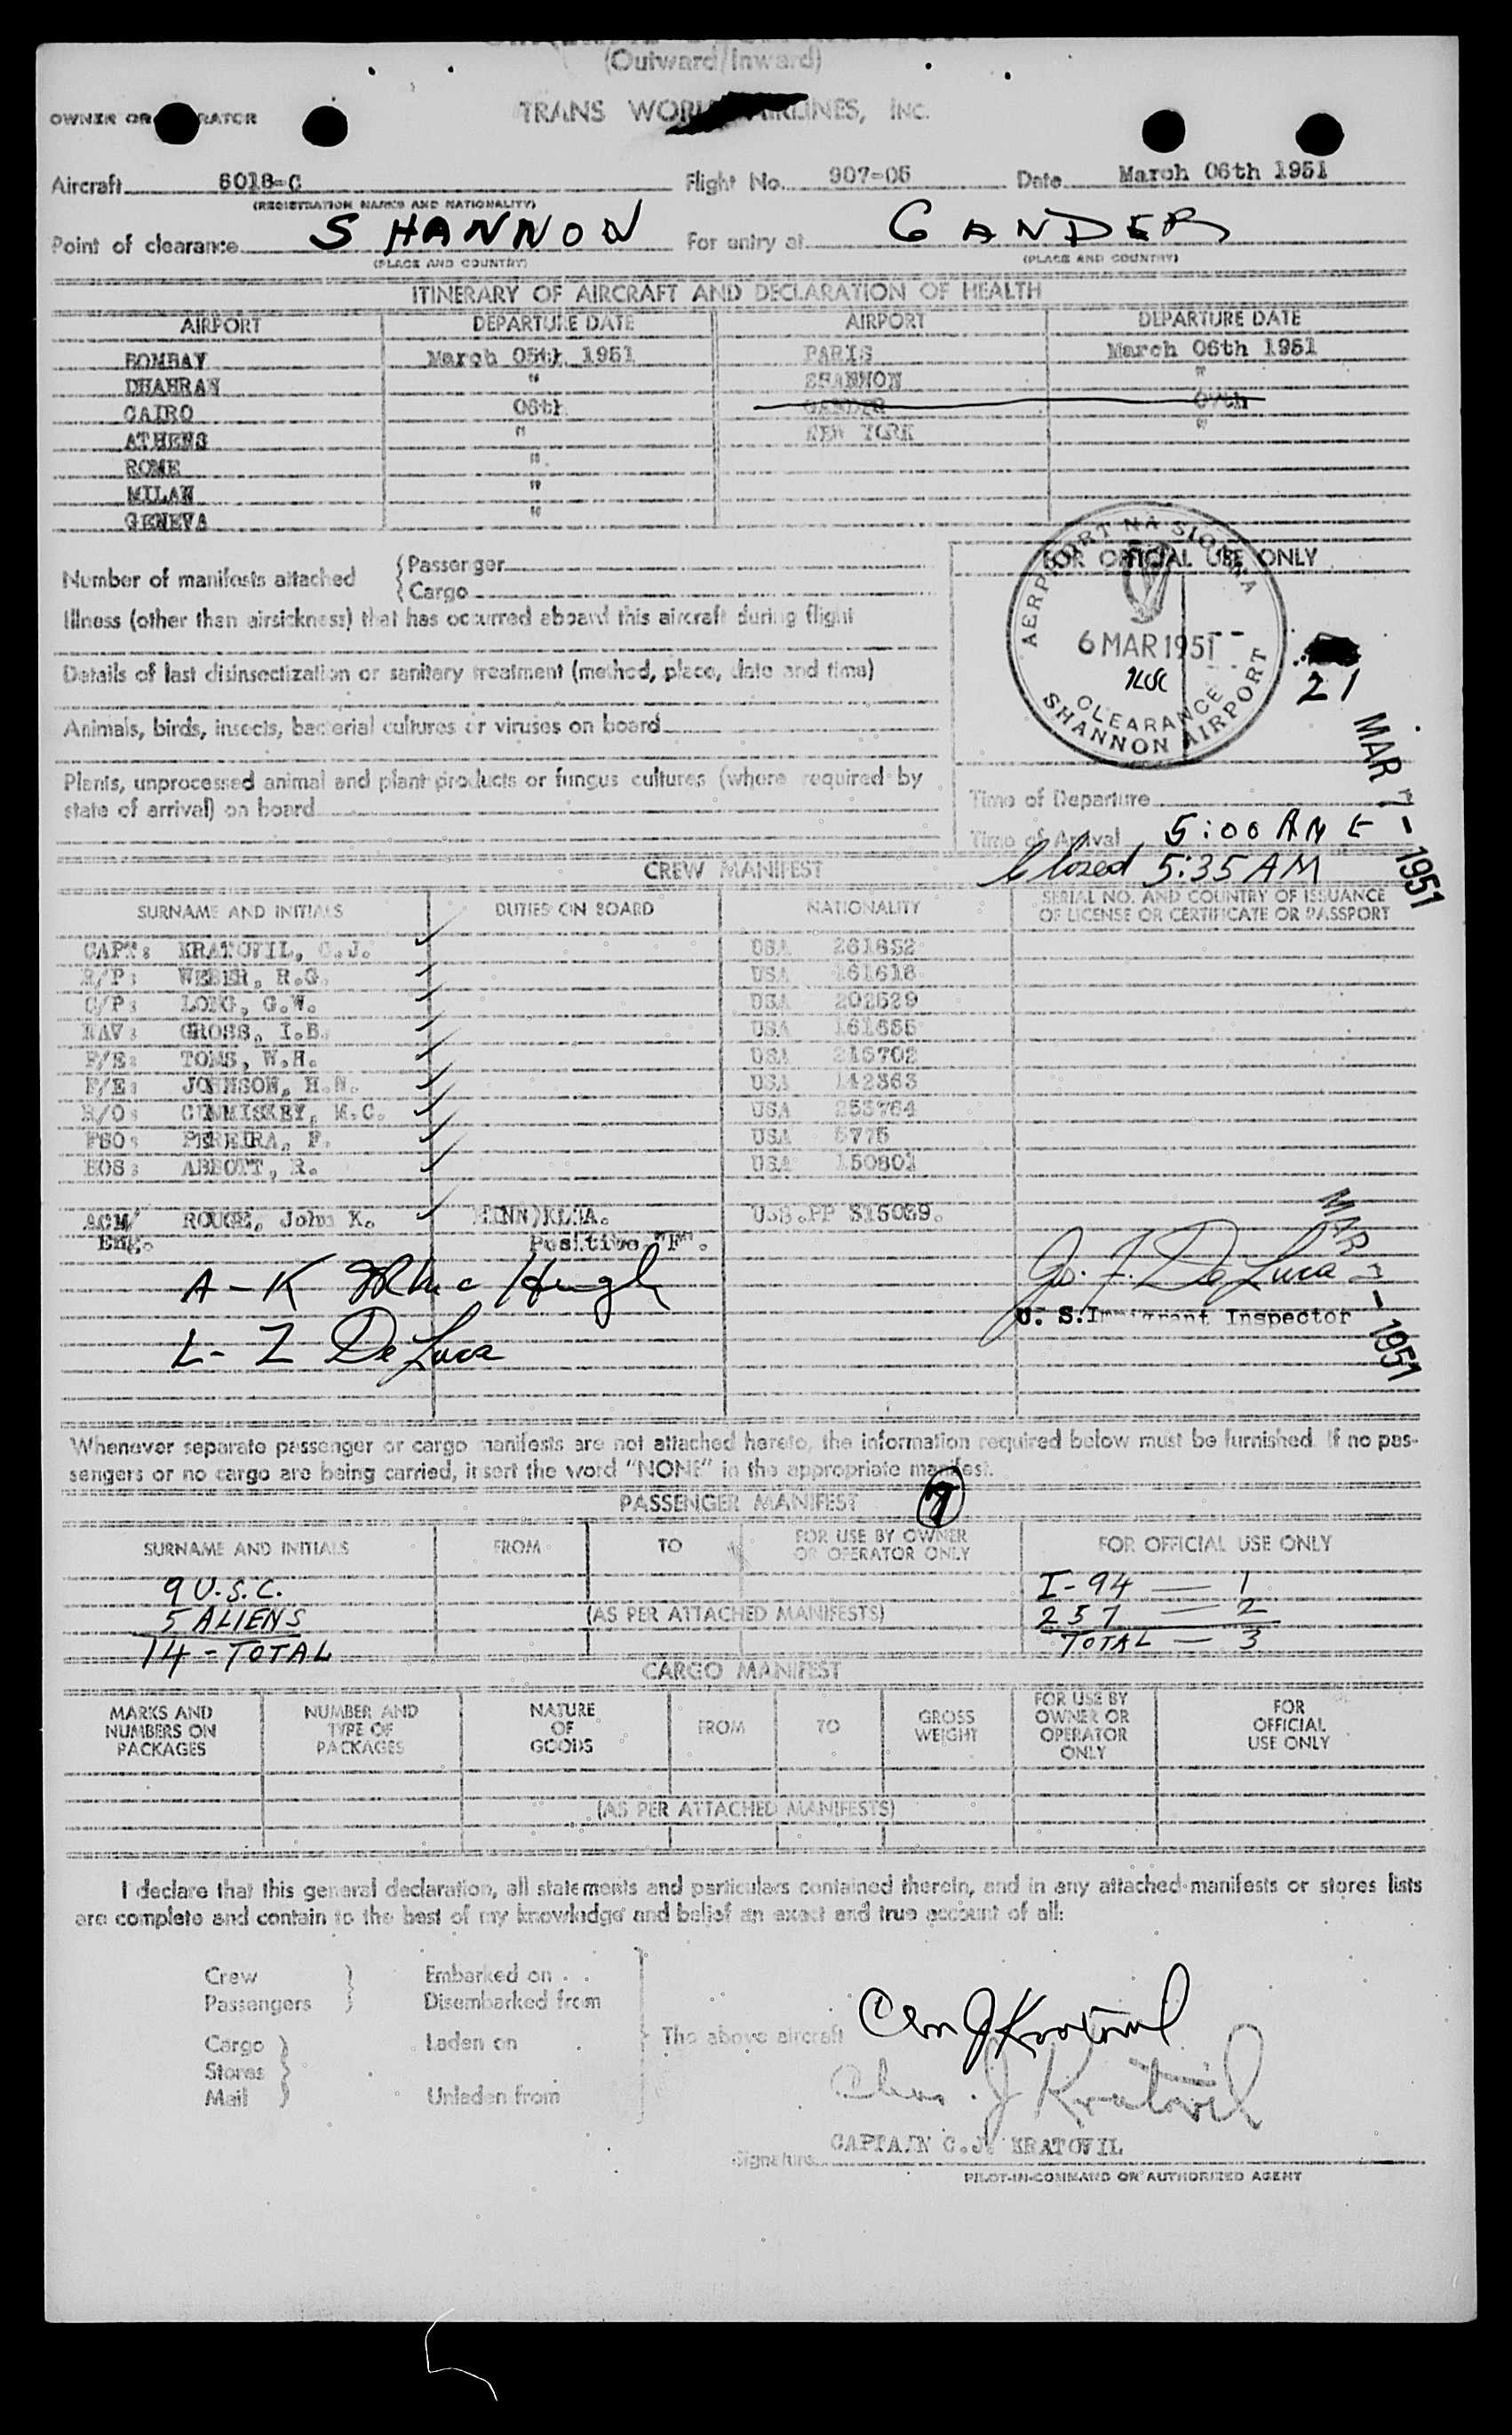 (Outward/Inward)
OWNER OR RATOR
TRANS WORL RLINES, INC.
Aircraft 6018-C Flight No. 907-05 Date March 06th 1951
(REGISTRATION MARKS AND NATIONALITY)
Point of clearance SHANNON For entry at GANDER
(PLACE AND COUNTRY) (PLACE AND COUNTRY)
ITINERARY OF AIRCRAFT AND DECLARATION OF HEALTH
AIRPORT DEPARTURE DATE AIRPORT DEPARTURE DATE
BOMBAY March 05th 1951 PARIS March 06th 1951
DHAHRAN " SHANNON "
CAIRO 06th GANDER 07th
ATHENS " NEW YORK "
ROME "
MILAN "
GENEVA "
Number of manifests attached { Passenger
{ Cargo
FOR OFFICIAL USE ONLY
Illness (other than airsickness) that has occurred aboard this aircraft during flight
Details of last disinsectization or sanitary treatment (method, place, date and time)
Animals, birds, insects, bacterial cultures or viruses on board
Plants, unprocessed animal and plant products or fungus cultures (where required by
state of arrival) on board
AERPHORT NA SIONNA
6 MAR 1951
CLEARANCE
SHANNON AIRPORT
21
MAR 7 - 1951
Time of Departure
Time of Arrival 5:00 AM E
Closed 5:35 AM
CREW MANIFEST
SURNAME AND INITIALS DUTIES ON BOARD NATIONALITY SERIAL NO. AND COUNTRY OF ISSUANCE
OF LICENSE OR CERTIFICATE OR PASSPORT
CAPT: KRATOVIL, C.J. USA 261852
R/P: WEBER, R.G. USA 161618
C/P: LONG, G.W. USA 202629
NAV: GROSS, I.B. USA 161655
F/E: TOMS, W.H. USA 216702
F/E: JOHNSON, H.N. USA 142363
R/O: CUMMISKEY, M.C. USA 253764
FSO: PEREIRA, F. USA 5775
HOS: ABBOTT, R. USA 150801
ACM/ ROUGE, John K. U.S.PP 315089.
Eng. Positive "F".
A - K Hugh
L - Z De Luca
Jos. F. De Luca
U. S. Immigrant Inspector
MAR 7 - 1951
Whenever separate passenger or cargo manifests are not attached hereto, the information required below must be furnished. If no pas-
sengers or no cargo are being carried, insert the word "NONE" in the appropriate manifest.
PASSENGER MANIFEST 7
SURNAME AND INITIALS FROM TO FOR USE BY OWNER
OR OPERATOR ONLY FOR OFFICIAL USE ONLY
9 U.S.C. I-94 — 1
5 ALIENS (AS PER ATTACHED MANIFESTS) 257 — 2
14 - TOTAL TOTAL — 3
CARGO MANIFEST
MARKS AND
NUMBERS ON
PACKAGES
NUMBER AND
TYPE OF
PACKAGES
NATURE
OF
GOODS
FROM
TO
GROSS
WEIGHT
FOR USE BY
OWNER OR
OPERATOR
ONLY
FOR
OFFICIAL
USE ONLY
(AS PER ATTACHED MANIFESTS)
I declare that this general declaration, all statements and particulars contained therein, and in any attached manifests or stores lists
are complete and contain to the best of my knowledge and belief an exact and true account of all:
Crew } Embarked on
Passengers } Disembarked from
Cargo } Laden on
Stores }
Mail } Unladen from
The above aircraft
Chas J Kratovil
Chas. J Kratovil
CAPTAIN C.J. KRATOVIL
Signature
PILOT-IN-COMMAND OR AUTHORIZED AGENT